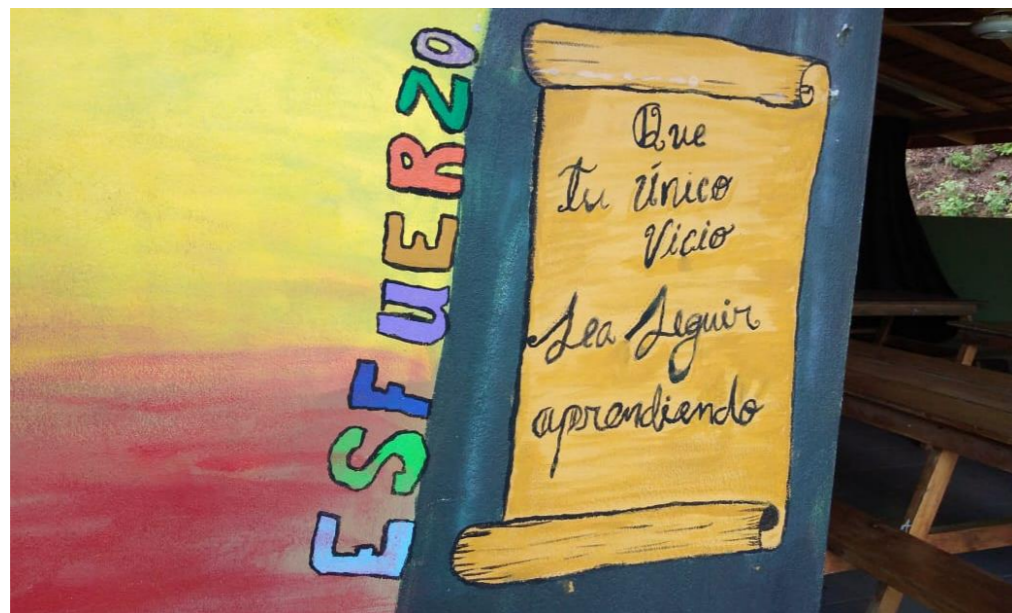 ESFUERZO
Que
tu único
Vicio
Sea Seguir
aprendiendo